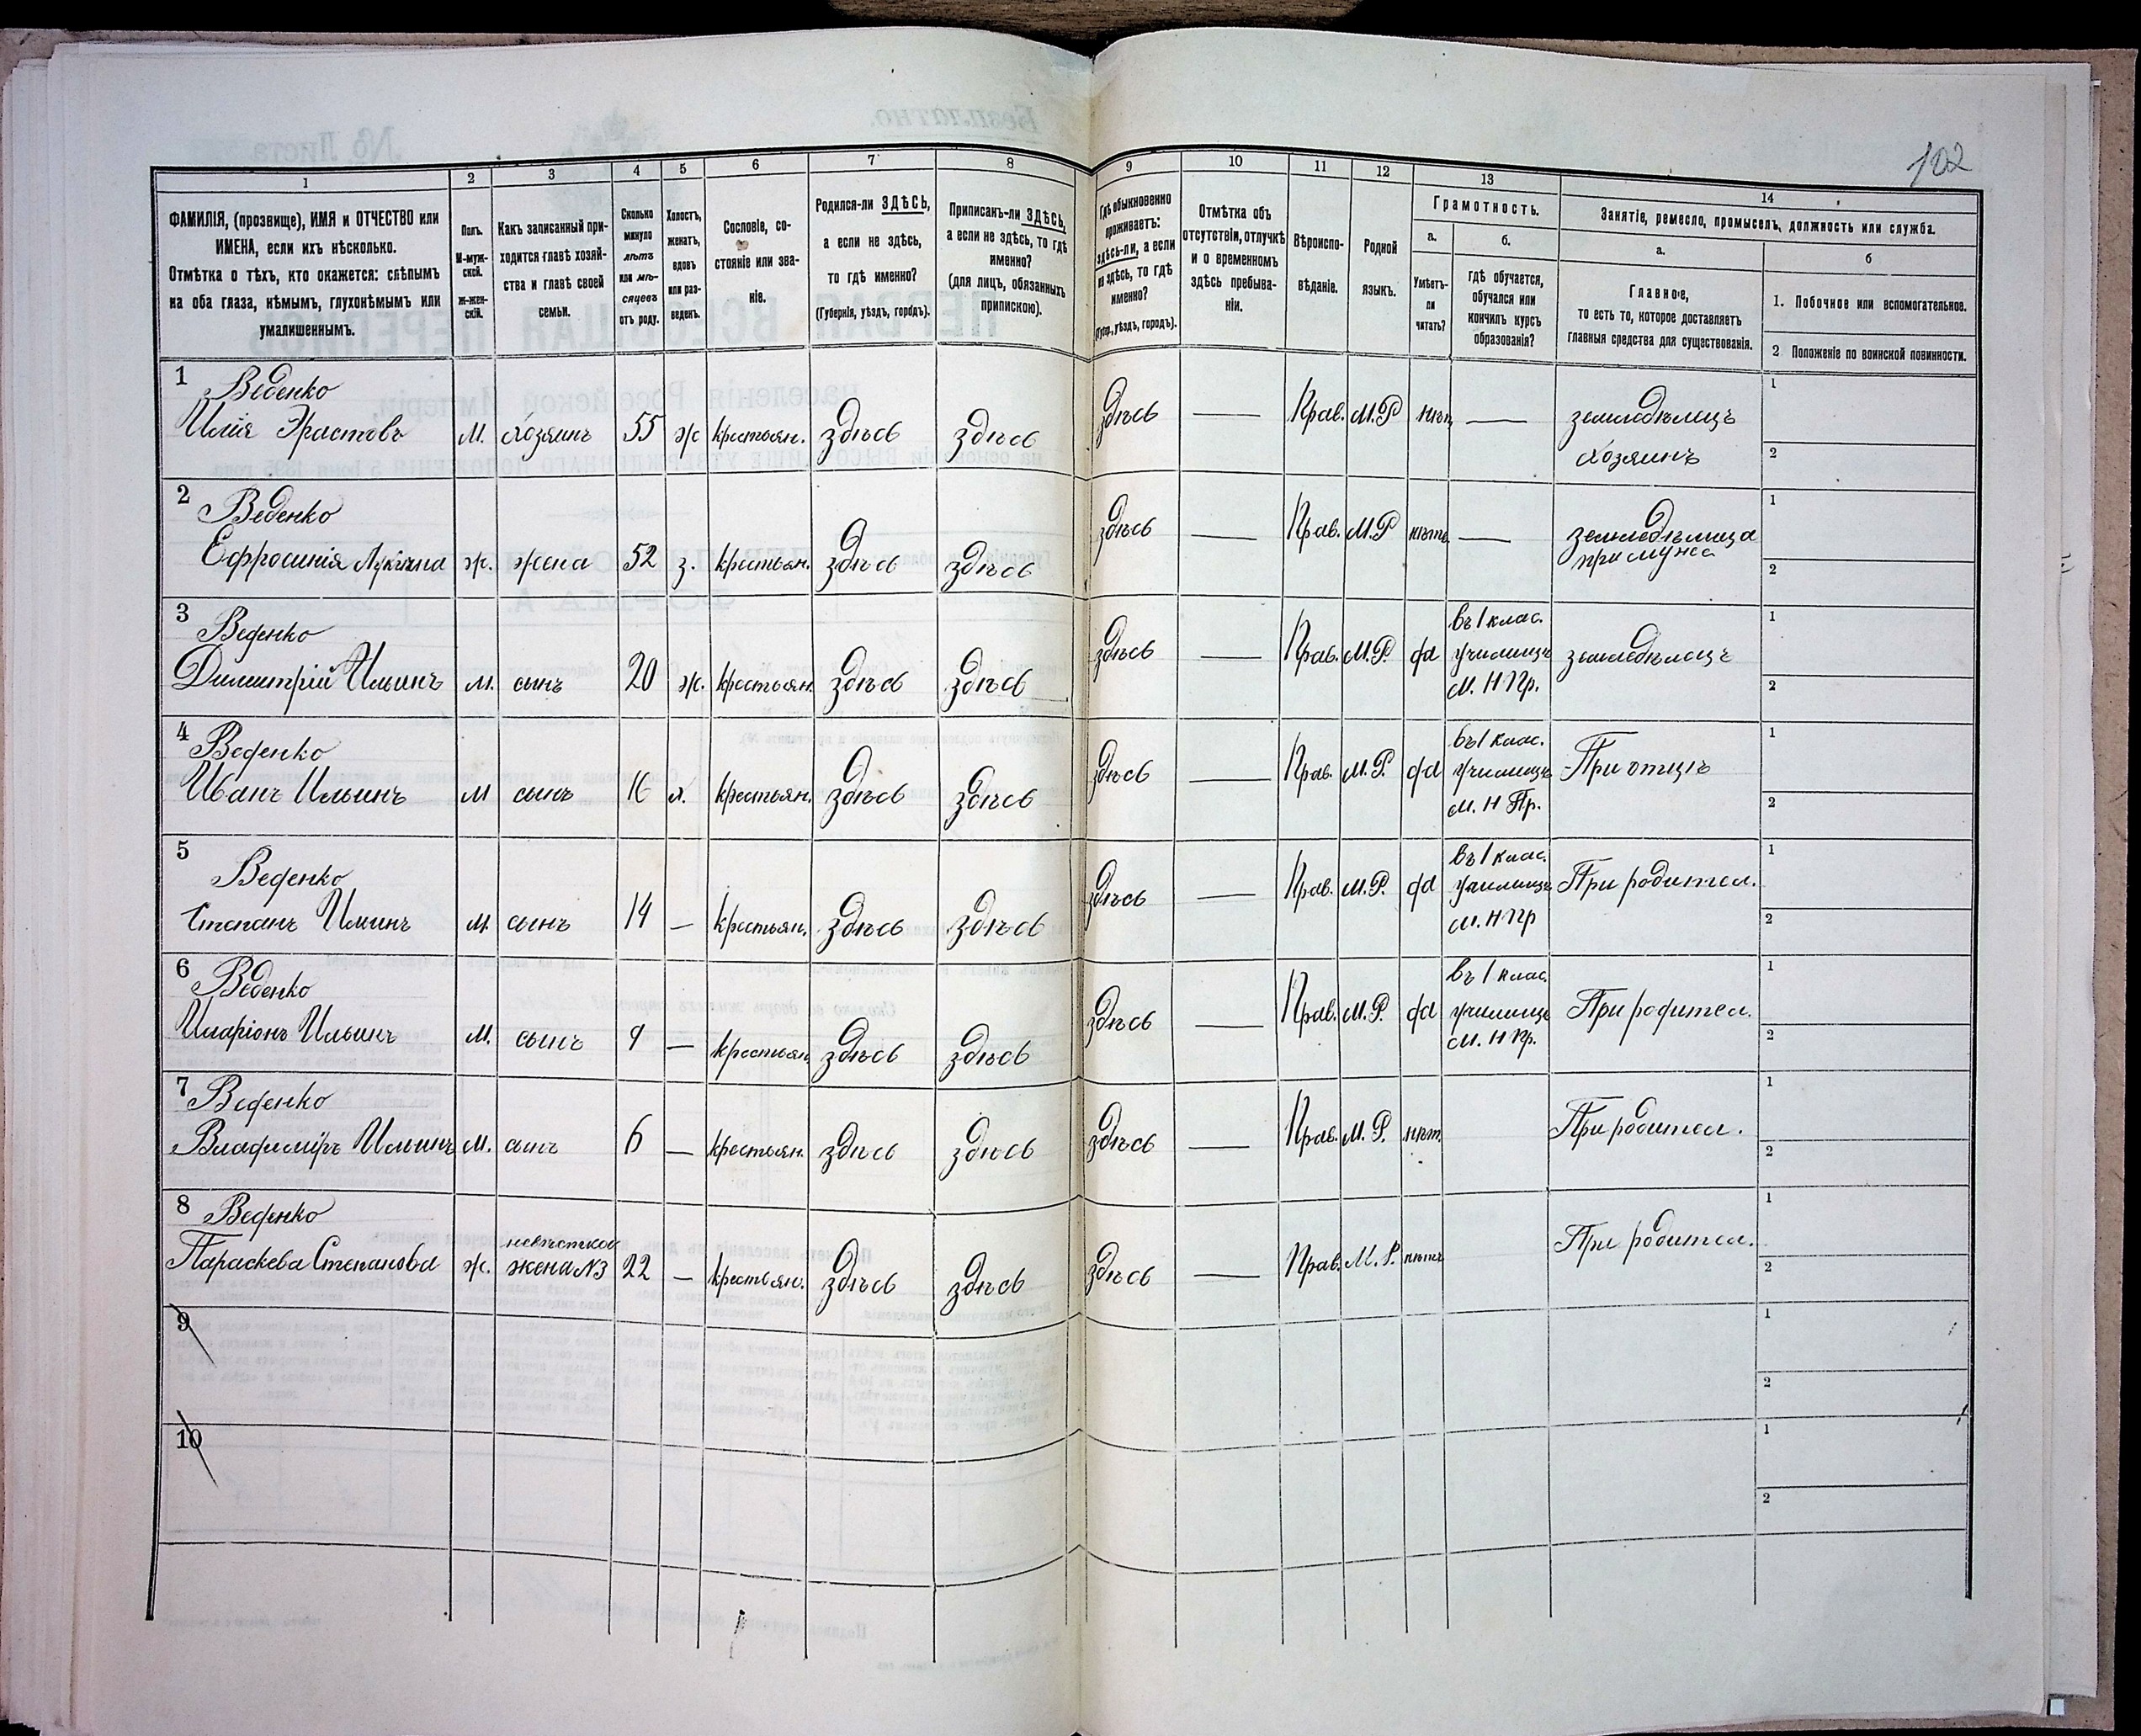 102
1 2 3 4 5 6 7 8 9 10 11 12 13 14
ФАМИЛІЯ, (прозвище), ИМЯ и ОТЧЕСТВО или
ИМЕНА, если ихъ нѣсколько.
Отмѣтка о тѣхъ, кто окажется: слѣпымъ
на оба глаза, нѣмымъ, глухонѣмымъ или
умалишеннымъ.
Полъ.
М-муж-
ской.
Ж-жен-
скій.
Какъ записанный при-
ходится главѣ хозяй-
ства и главѣ своей
семьи.
Сколько
минуло
лѣтъ
или мѣ-
сяцевъ
отъ роду.
Холостъ,
женатъ,
вдовъ
или раз-
веденъ.
Сословіе, со-
стояніе или зва-
ніе.
Родился-ли ЗДѢСЬ,
а если не здѣсь,
то гдѣ именно?
(Губернія, уѣздъ, городъ).
Приписанъ-ли ЗДѢСЬ,
а если не здѣсь, то гдѣ
именно?
(для лицъ, обязанныхъ
припискою).
Гдѣ обыкновенно
проживаетъ:
здѣсь-ли, а если
не здѣсь, то гдѣ
именно?
(Губер., уѣздъ, городъ).
Отмѣтка объ
отсутствіи, отлучкѣ
и о временномъ
здѣсь пребыва-
ніи.
Вѣроиспо-
вѣданіе.
Родной
языкъ.
Грамотность.
а.
Умѣетъ-
ли
читать?
б.
гдѣ обучается,
обучался или
кончилъ курсъ
образованія?
Занятіе, ремесло, промыселъ, должность или служба.
а.
Главное,
то есть то, которое доставляетъ
главныя средства для существованія.
б
1. Побочное или вспомогательное.
2 Положеніе по воинской повинности.
1 Веденко
Илія Эрастовъ м. хозяинъ 55 ж крестьян. здѣсь здѣсь здѣсь — Прав. М.Р нѣт — земледѣлецъ
хозяинъ
1
2
2 Веденко
Ефросинія Лукічна ж. жена 52 з. крестьян. здѣсь здѣсь здѣсь — Прав. М.Р нѣтъ — земледѣлица
при мужѣ
1
2
3 Веденко
Димитрій Ильинъ м. сынъ 20 ж. крестьян. здѣсь здѣсь здѣсь — Прав. М.Р. да
въ 1 клас.
училищѣ
М. Н Пр.
земледѣлецъ
1
2
4 Веденко
Иванъ Ильинъ м сынъ 16 х. крестьян. здѣсь здѣсь здѣсь — Прав. М.Р. да
въ 1 клас.
училищѣ
М. Н Пр.
При отцѣ
1
2
5 Веденко
Степанъ Ильинъ м. сынъ 14 — крестьян. здѣсь здѣсь здѣсь — Прав. М.Р. да
въ 1 клас.
училищѣ
М. Н Пр
При родител.
1
2
6 Веденко
Иларіонъ Ильинъ м. сынъ 9 — крестьян. здѣсь здѣсь здѣсь — Прав. М.Р. да
въ 1 клас.
училищѣ
М. Н Пр.
При родител.
1
2
7 Веденко
Владиміръ Ильинъ м. сынъ 6 — крестьян. здѣсь здѣсь здѣсь — Прав. М.Р. нѣт. При родител.
1
2
8 Веденко
невѣстка
Параскева Степанова ж. жена №3 22 — крестьян. здѣсь здѣсь здѣсь — Прав. М.Р. нѣтъ При родител.
1
2
9
1
2
10
1
2